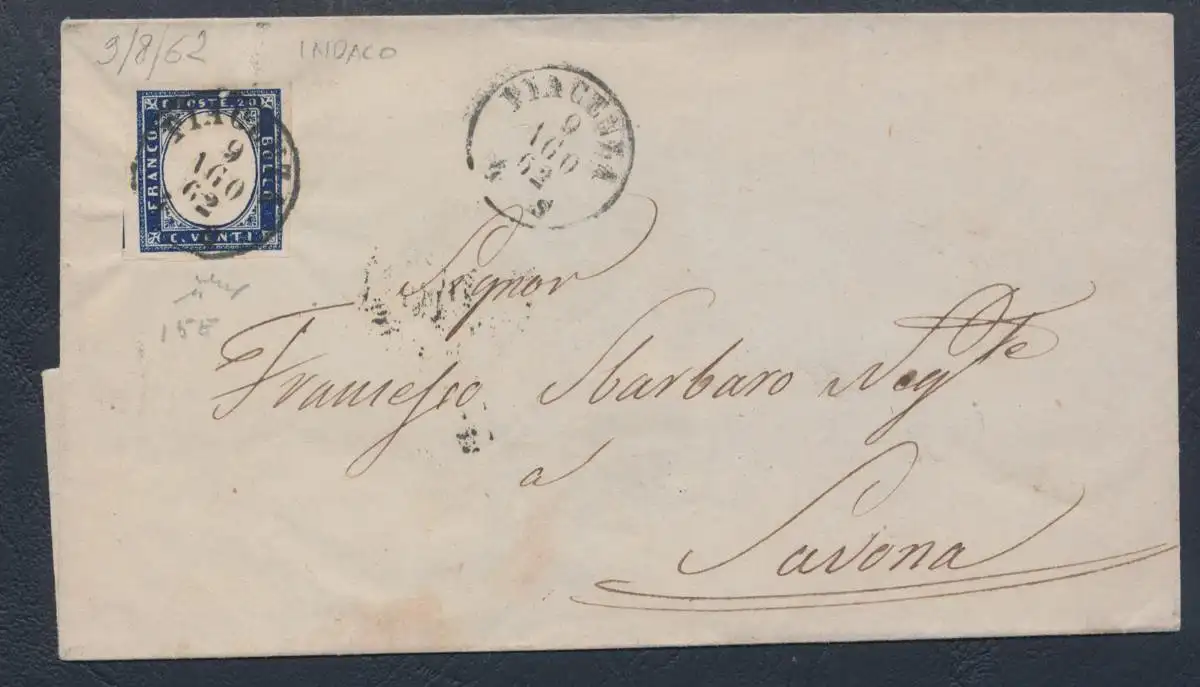 9/8/62
INDACO
C. POSTE. 20
FRANCO
BOLLO
C. VENTI
PIACENZA
9
AGO
62
PIACENZA
9
AGO
62
Signor
Francesco Sbarbaro Neg.te
a
Savona
15E